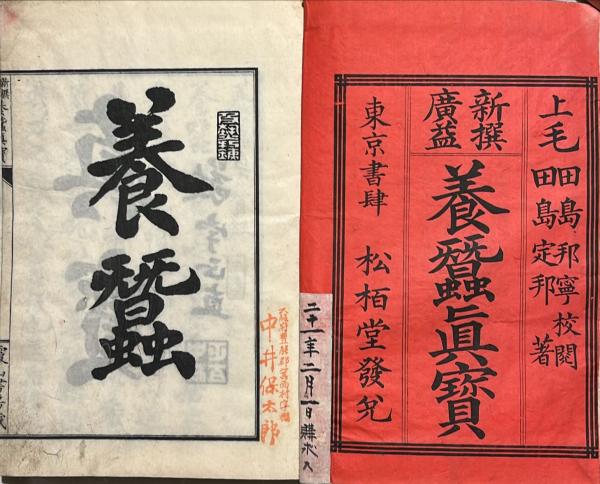 上毛
田島邦寧校閲
田島定邦著
新撰
廣益
養蠶眞寳
東京書肆 松栢堂發兌
二十一年二月一日購求
養蠶
中井保太郎